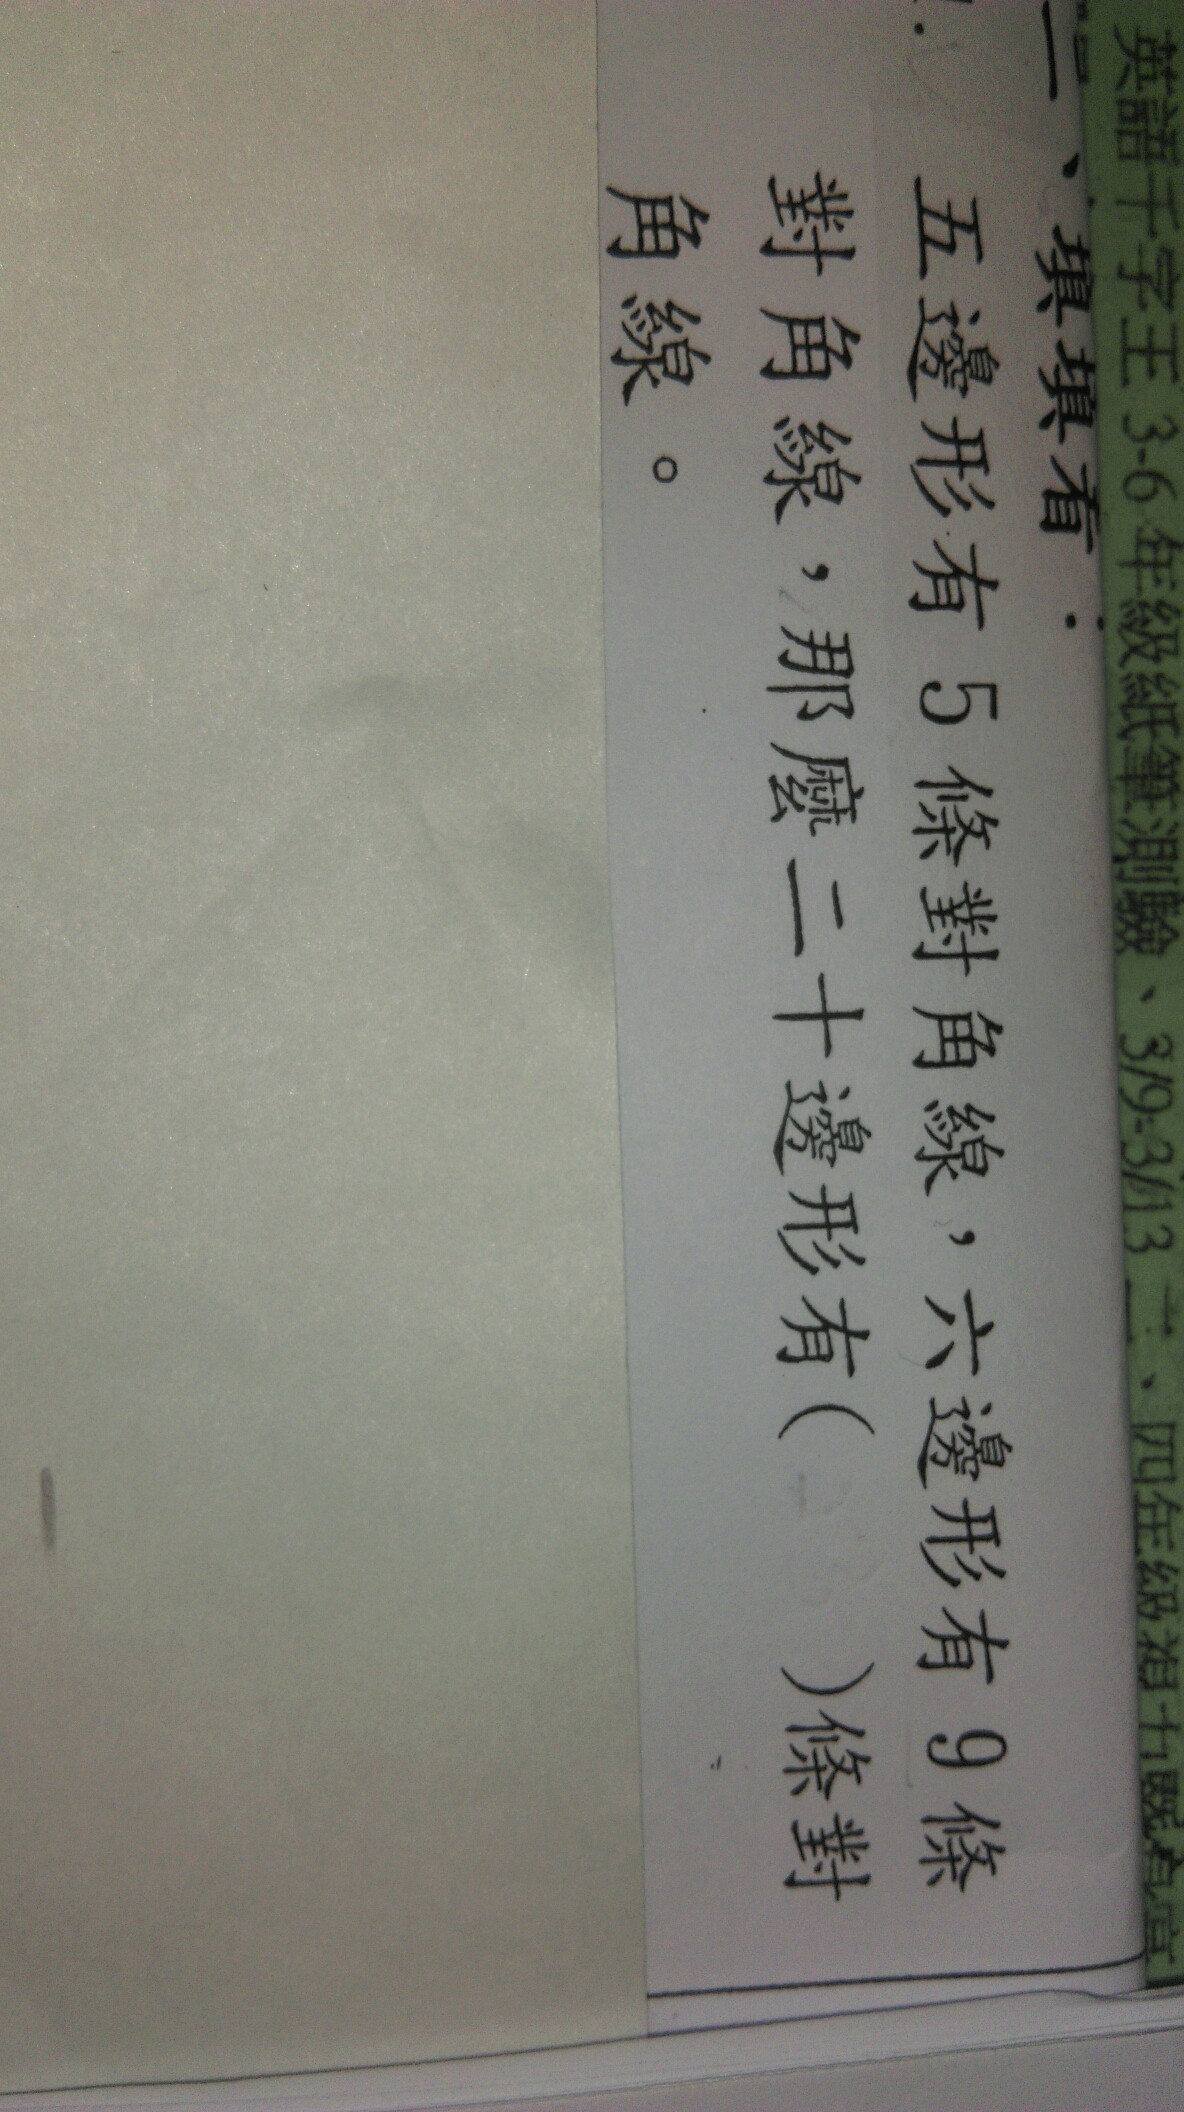 英語千字王3-6年級紙筆測驗、3/9-3/13 二、四年級視力
二、填填看：
五邊形有5條對角線，六邊形有9條
對角線，那麼二十邊形有(　　)條對
角線。